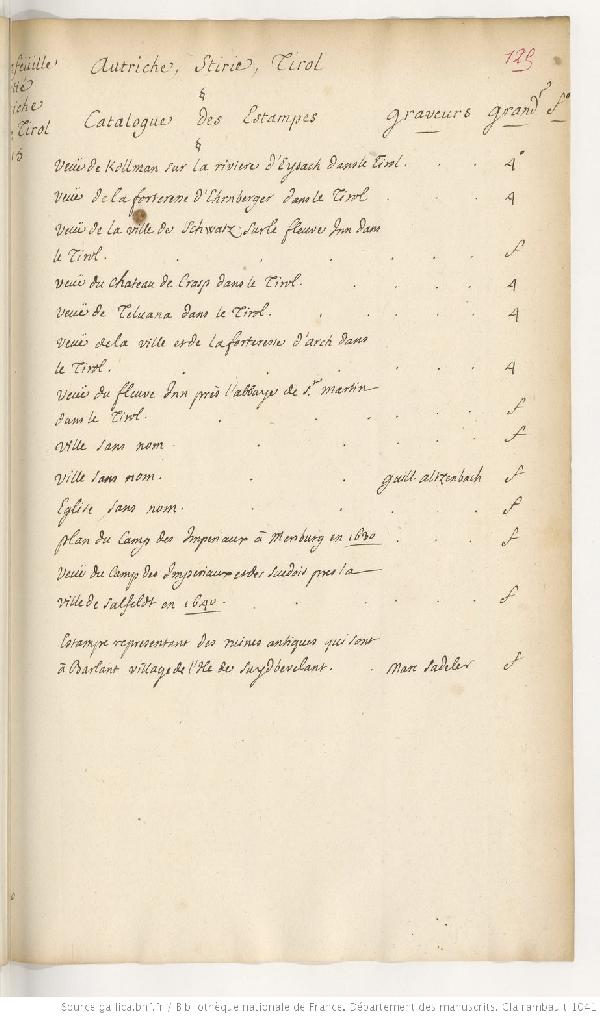 Autriche, Stirie, Tirol
125
Catalogue des Estampes graveurs grandr fo
Tirol
Veüe de Kollman sur la riviere d'Eysach dans le Tirol. 4°
Veüe de la forteresse d'Ehrnberger dans le Tirol 4
Veüe de la ville de Schwatz sur le fleuve Inn dans
le Tirol. f
Veüe du Chateau de Crasp dans le Tirol. 4
Veüe de Teluana dans le Tirol. 4
Veüe de la ville et de la forteresse d'arch dans
le Tirol. 4
Veüe du fleuve Inn près l'abbaye de St martin
dans le Tirol. f
Ville sans nom f
Ville sans nom. guill. altzenbach f
Eglise sans nom. f
plan du Camp des Imperiaux à Mersburg en 1630 f
Veüe du Camp des Imperiaux et des Suedois pres la
Ville de Salfeldt en 1640. f
Estampe representant des ruines antiques qui sont
à Barlant village de l'Isle de Suydbevelant. Marc Sadeler f
Source gallica.bnf.fr / Bibliothèque nationale de France. Département des manuscrits. Clairambault 1041